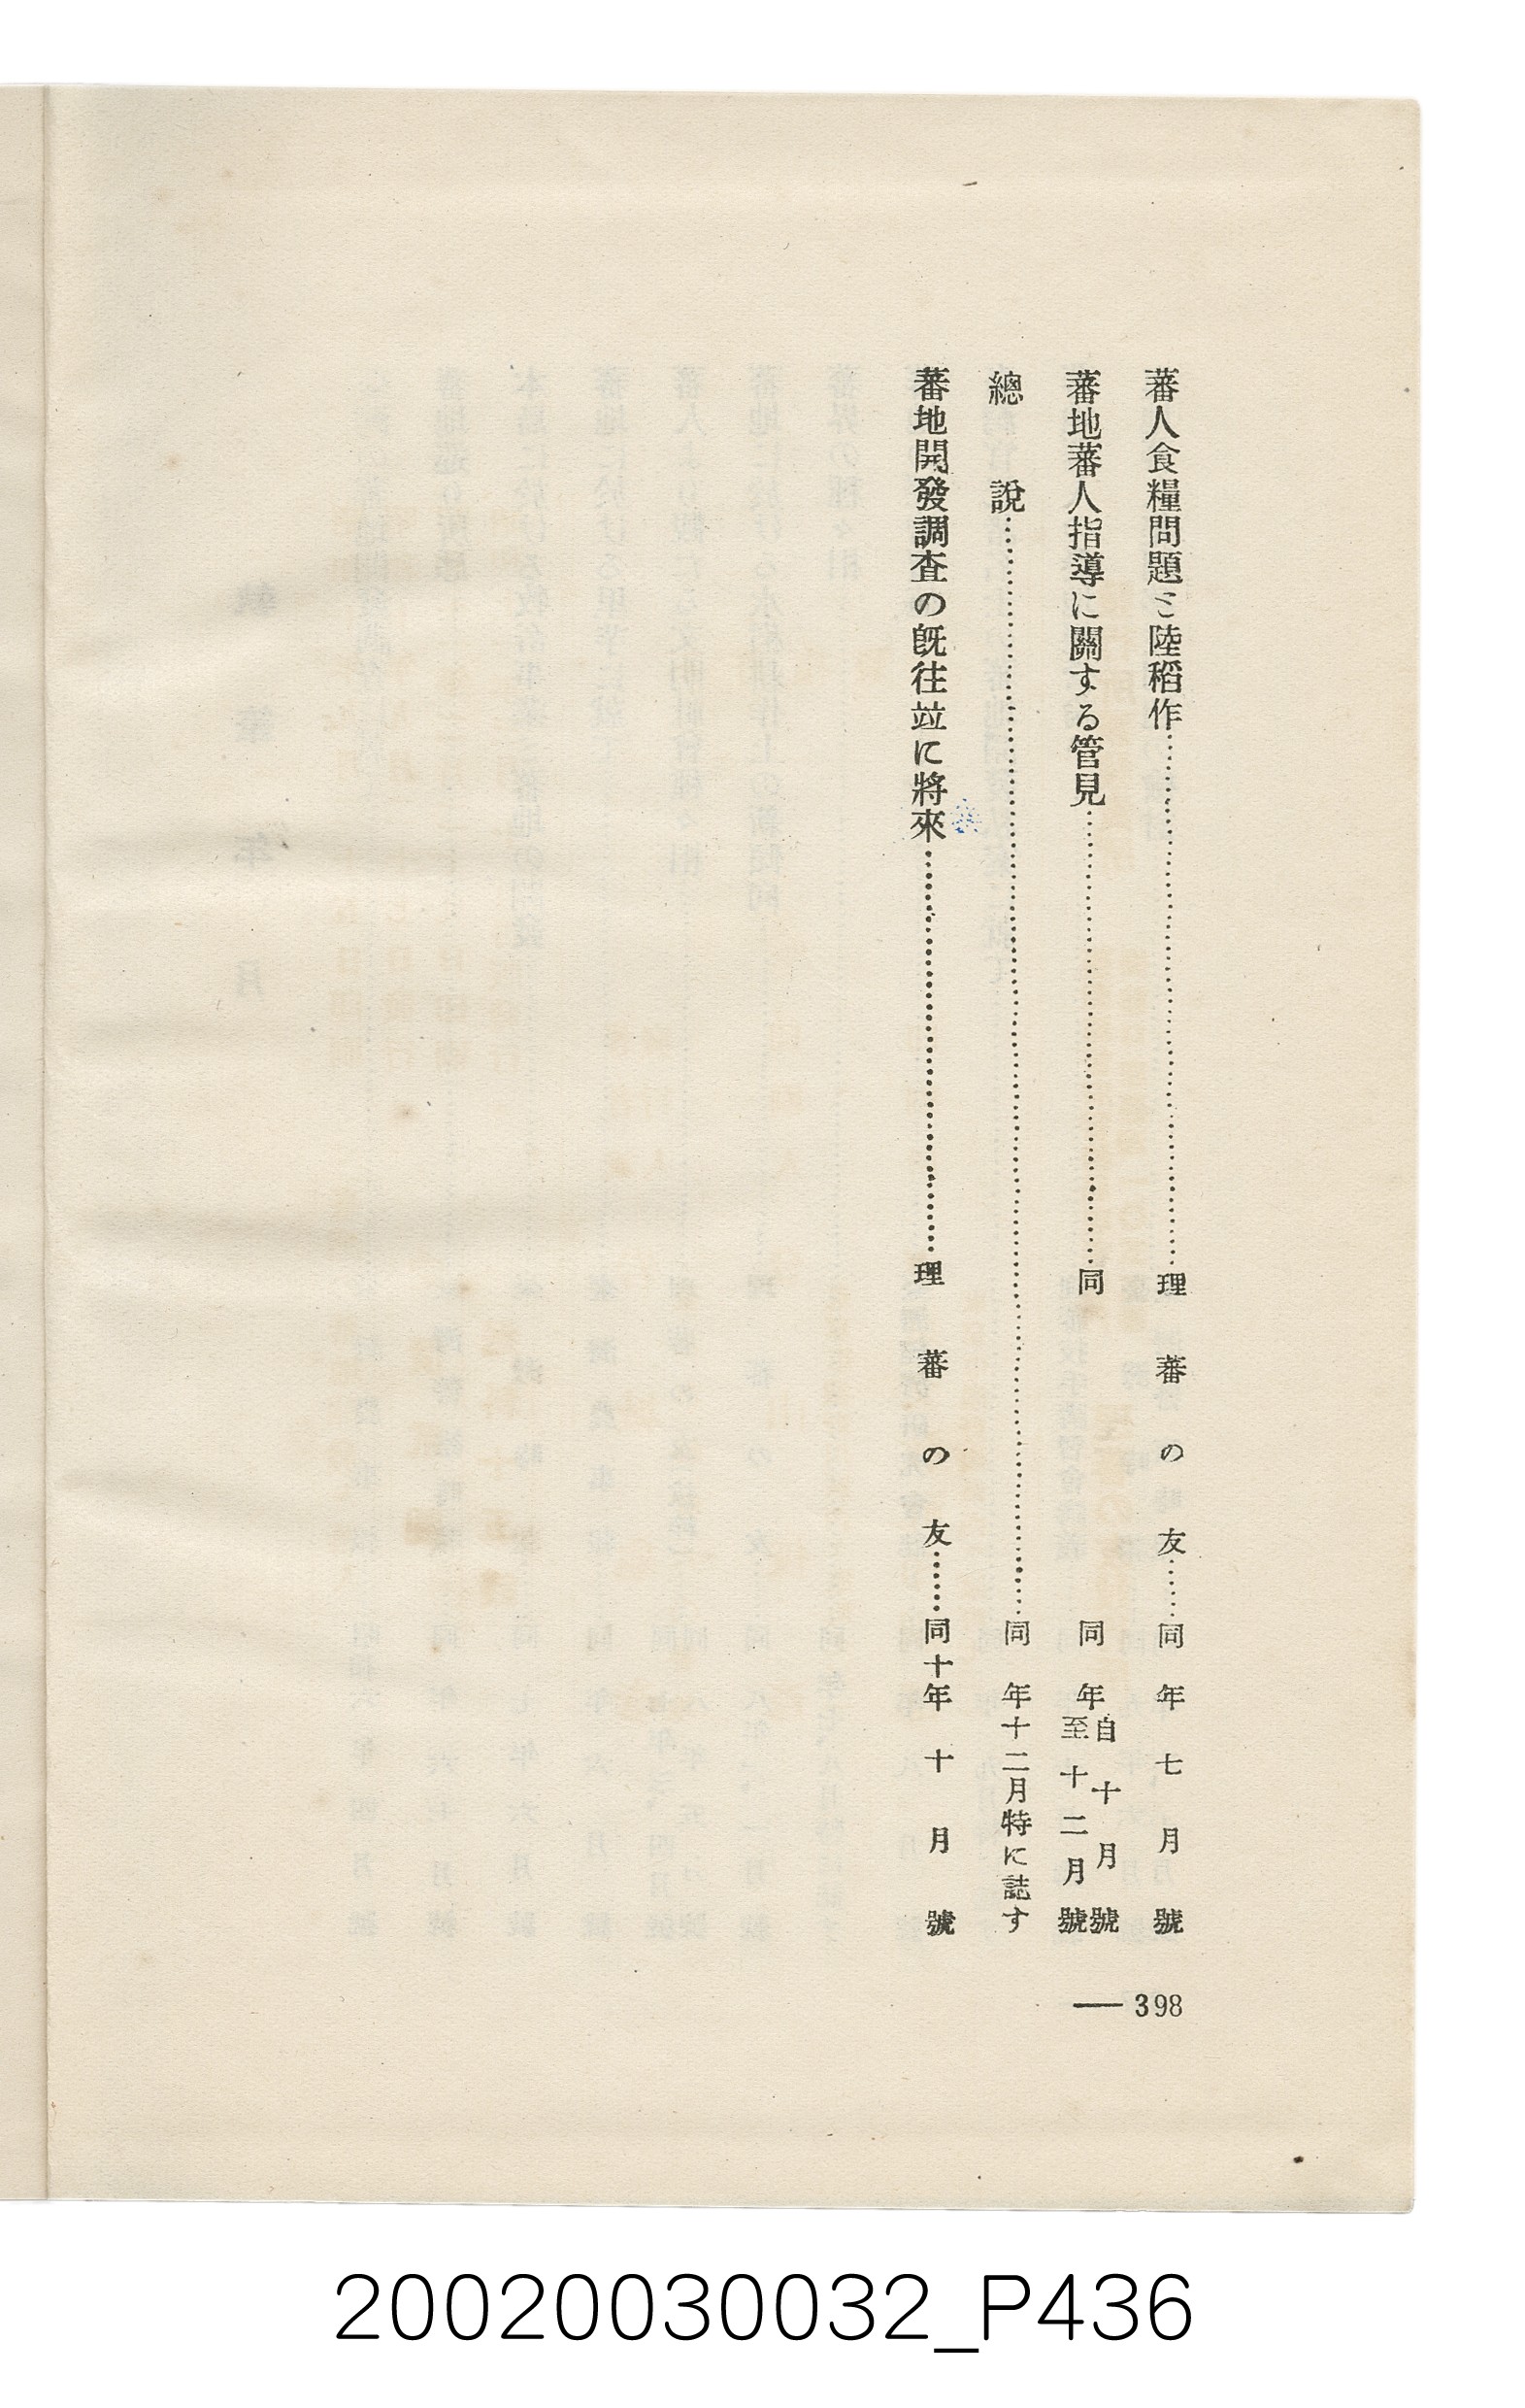 蕃人食糧問題ミ陸稻作……………理蕃の友……同年七月號
蕃地蕃人指導に關する管見……………同 同年自十月號至十二月號
總說……………同年十二月特に誌す
蕃地開發調査の既往竝に將來……………理蕃の友……同十年十月號
— 398
20020030032_P436